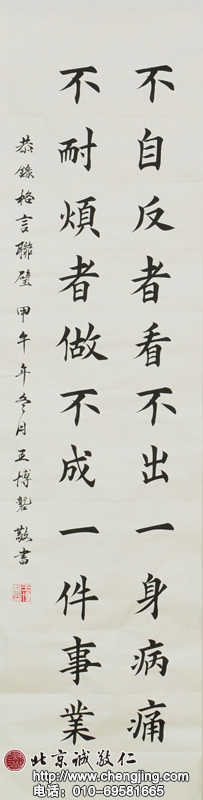 不自反者看不出一身病痛
不耐煩者做不成一件事業
恭錄格言聯璧 甲午年冬月王博磬敬書
北京誠敬仁
http://www.chengjing.com
电话：010-69581665